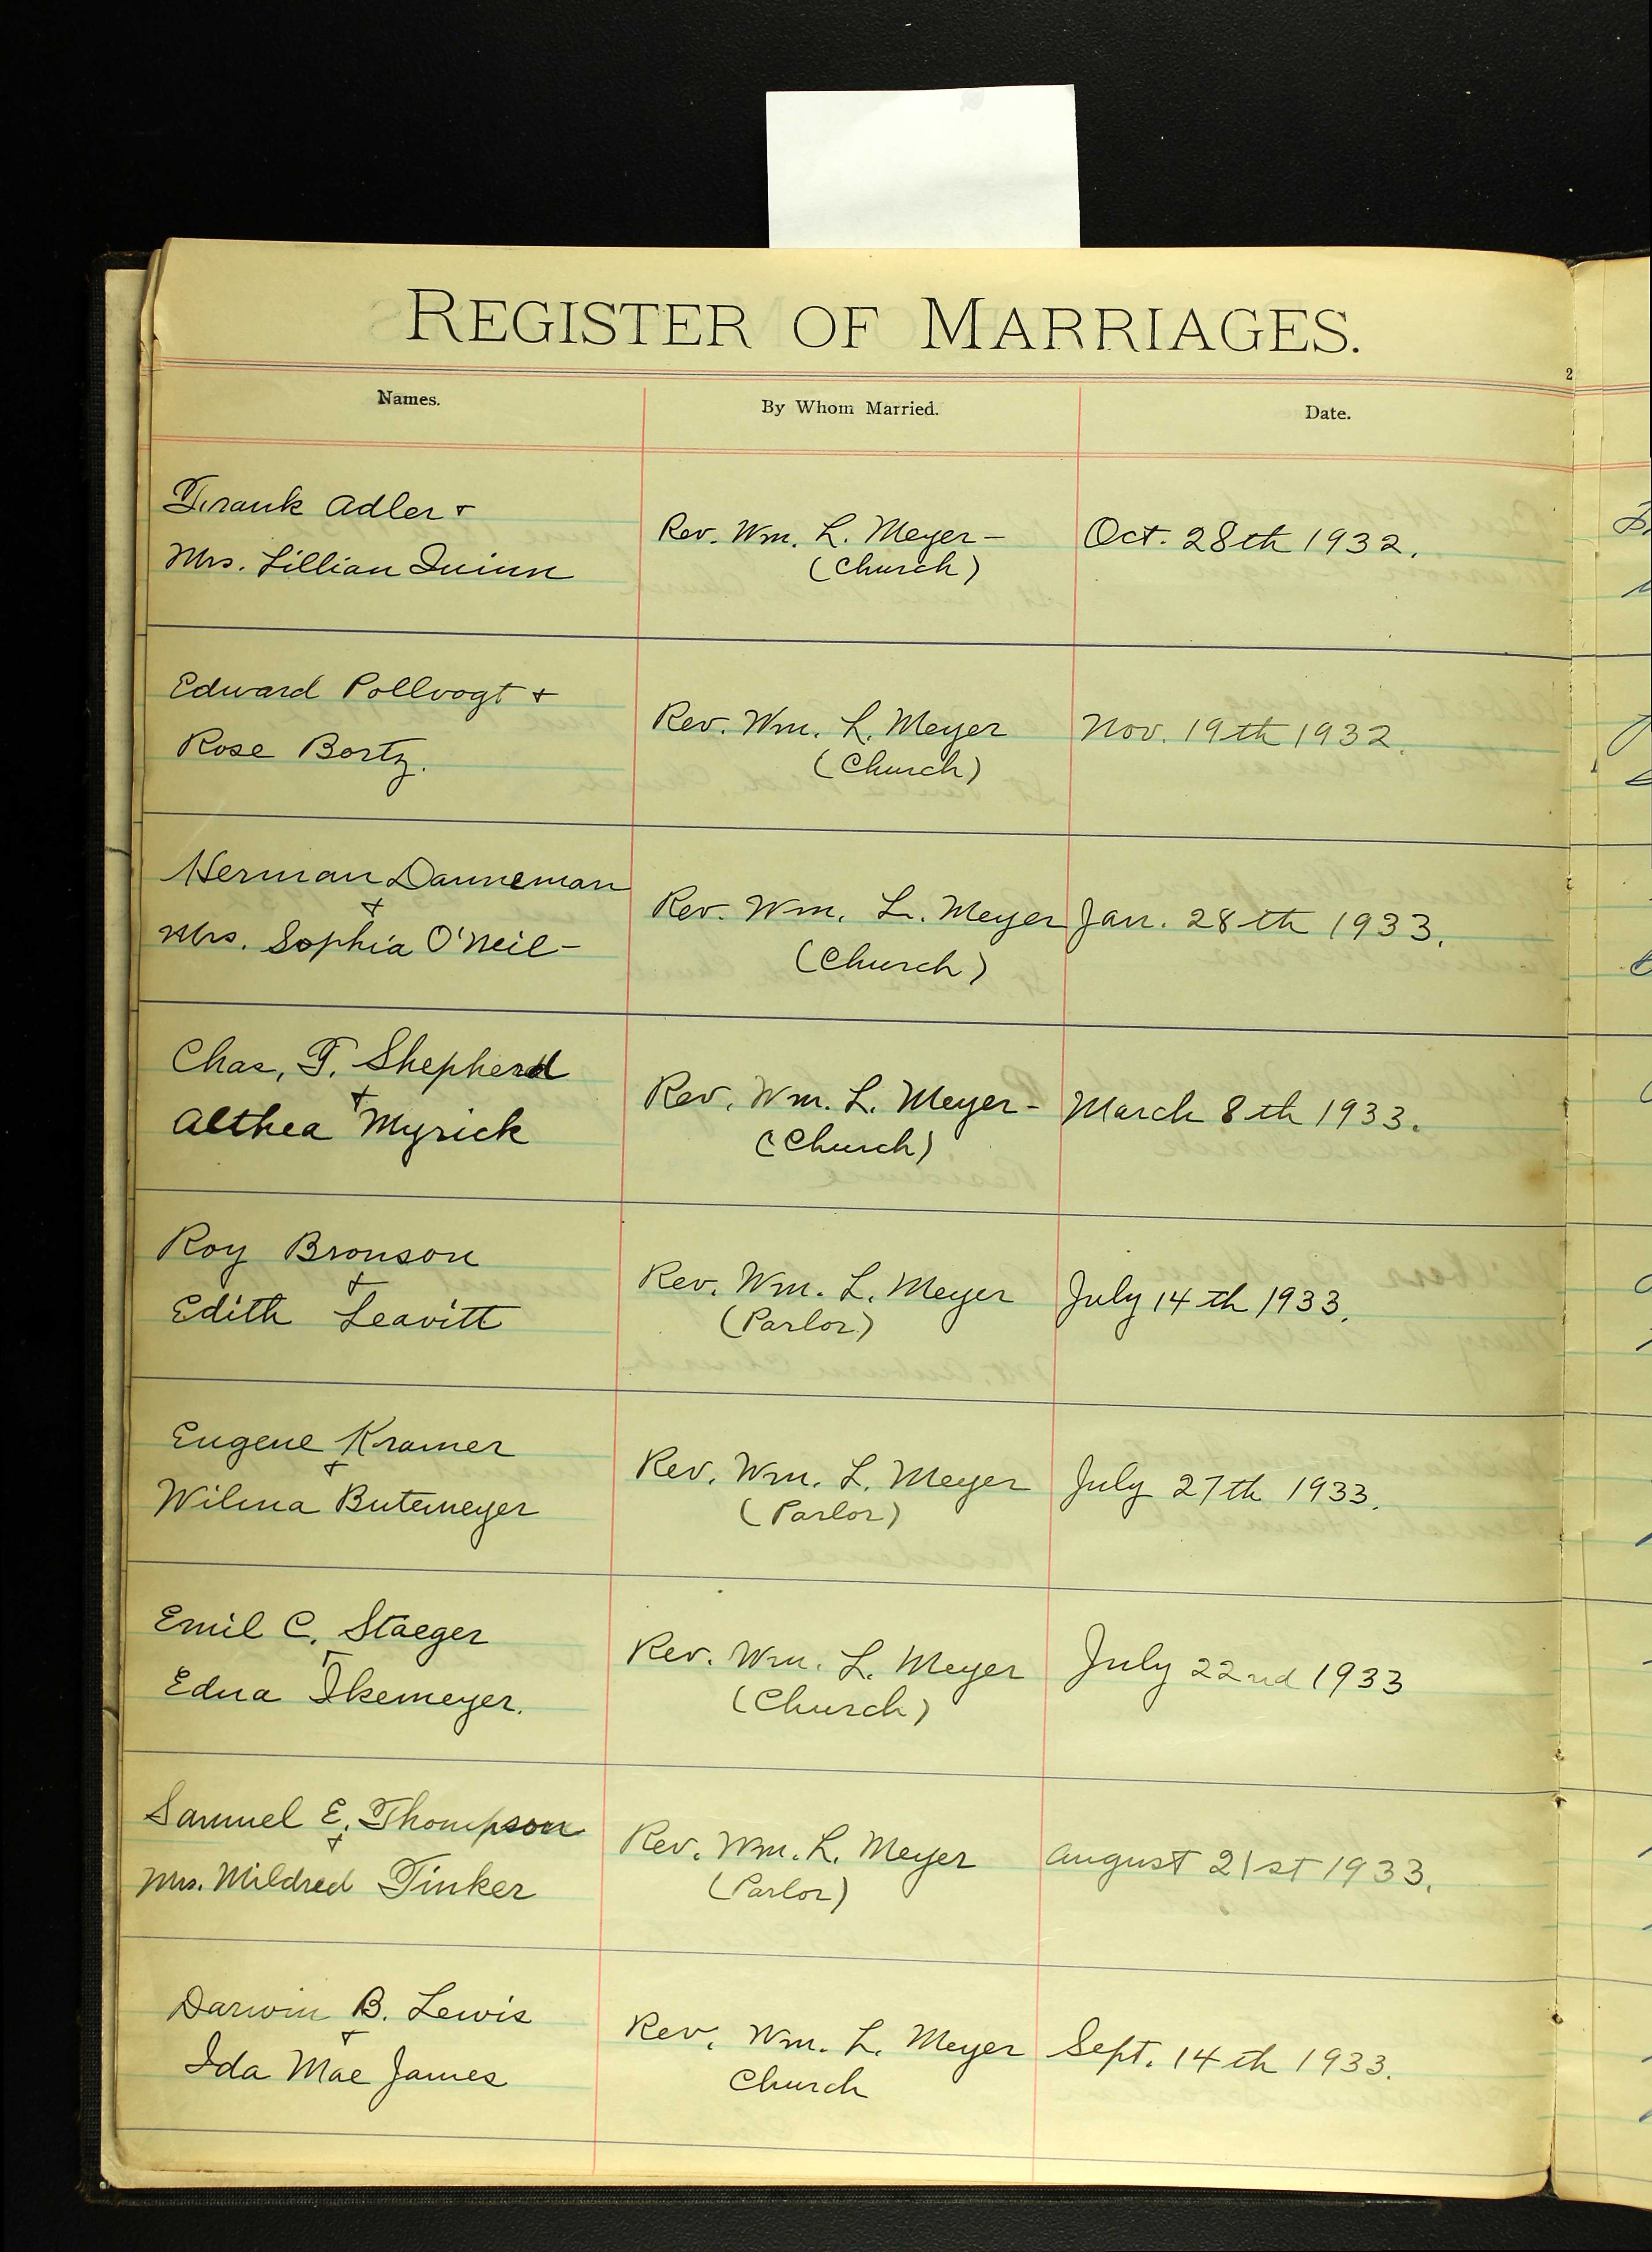 REGISTER OF MARRIAGES.
2
Names. By Whom Married. Date.
Frank Adler &
Mrs. Lillian Quinn
Rev. Wm. L. Meyer -
(Church)
Oct. 28th 1932.
Edward Pollvogt &
Rose Bortz.
Rev. Wm. L. Meyer
(Church)
Nov. 19th 1932.
Herman Danneman
&
Mrs. Sophia O'Neil -
Rev. Wm. L. Meyer
(Church)
Jan. 28th 1933.
Chas. F. Shepherd
&
Althea Myrick
Rev. Wm. L. Meyer -
(Church)
March 8th 1933.
Roy Bronson
&
Edith Leavitt
Rev. Wm. L. Meyer
(Parlor)
July 14th 1933.
Eugene Kramer
&
Wilma Butemeyer
Rev. Wm. L. Meyer
(Parlor)
July 27th 1933.
Emil C. Staeger
&
Edna Ikemeyer.
Rev. Wm. L. Meyer
(Church)
July 22nd 1933
Samuel E. Thompson
&
Mrs. Mildred Tinker
Rev. Wm. L. Meyer
(Parlor)
August 21st 1933.
Darwin B. Lewis
&
Ida Mae James
Rev. Wm. L. Meyer
Church
Sept. 14th 1933.